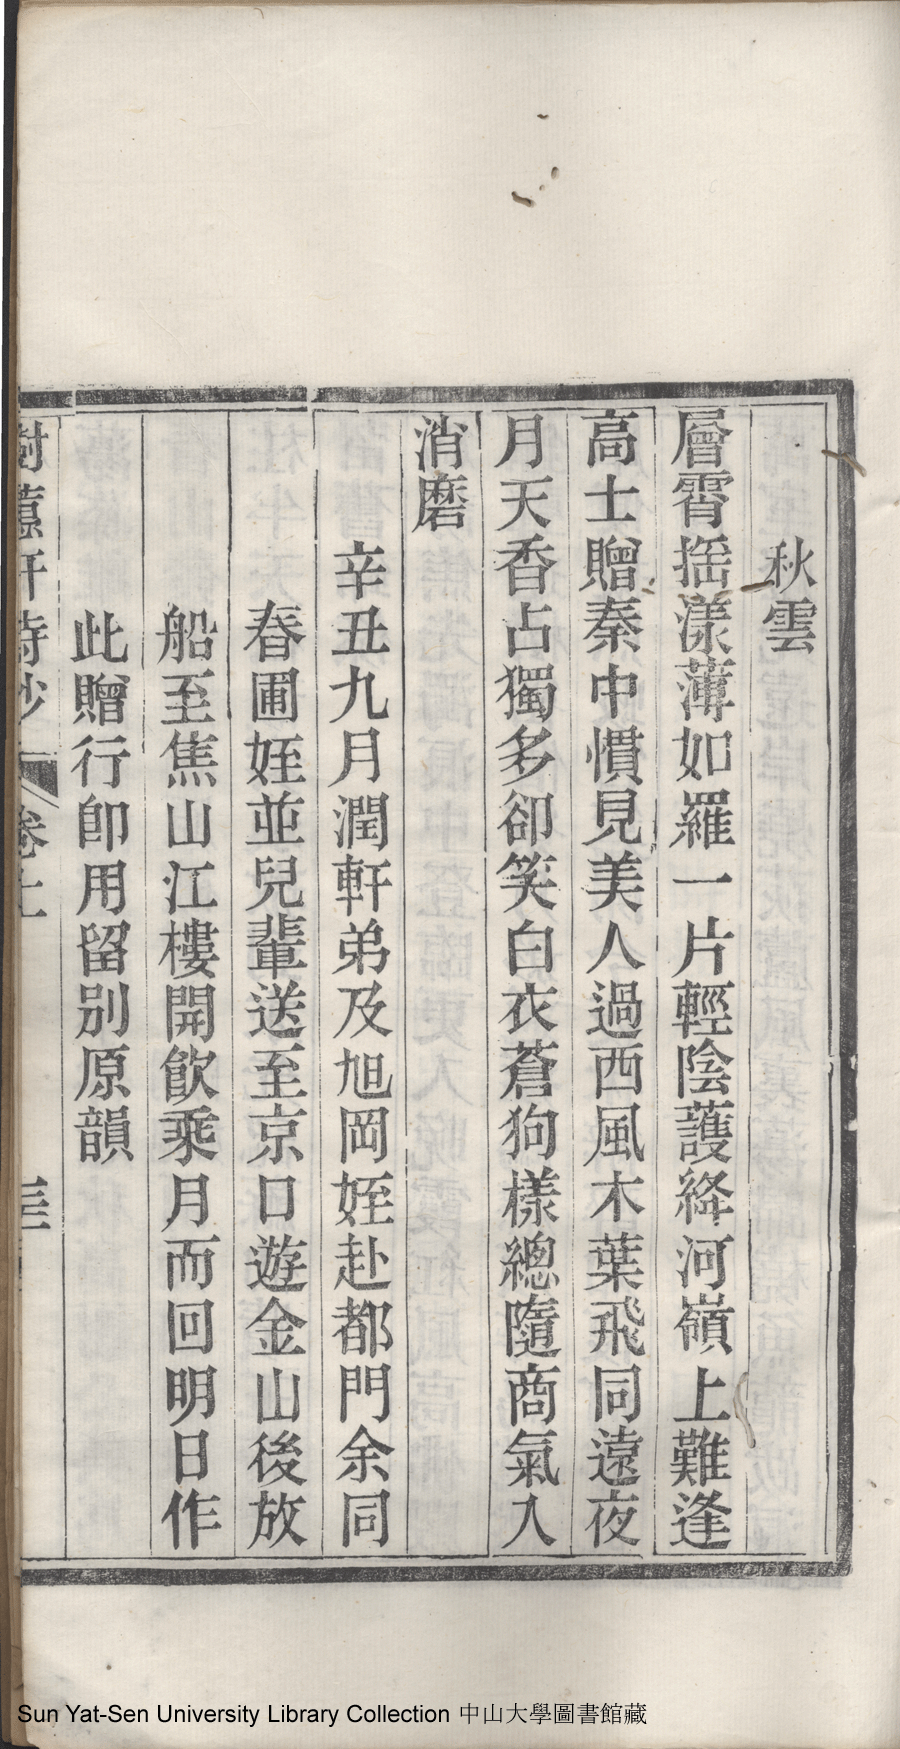 秋雲
層霄揺漾薄如羅一片輕陰護絳河嶺上難逢
高士贈秦中慣見美人過西風木葉飛同遠夜
月天香占獨多卻笑白衣蒼狗樣總隨商氣入
消磨
辛丑九月潤軒弟及旭岡姪赴都門余同
春圃姪並兒輩送至京口遊金山後放
船至焦山江樓開飲乘月而回明日作
此贈行卽用留別原韻
樹蕙軒詩鈔 卷上
Sun Yat-Sen University Library Collection 中山大學圖書館藏